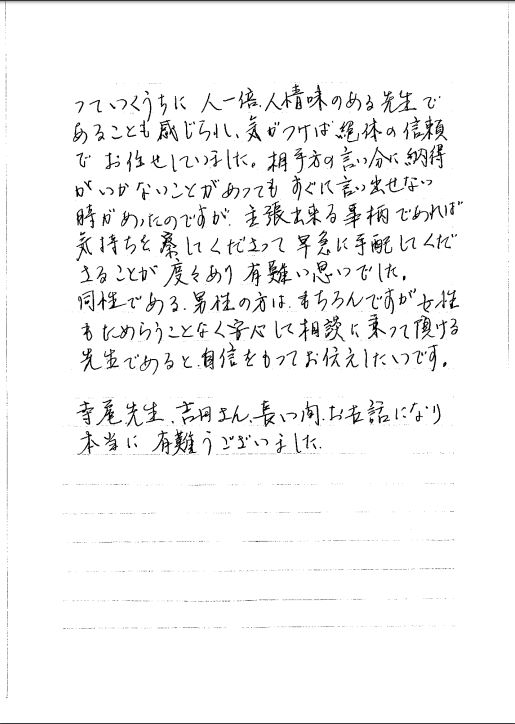 っていくうちに 人一倍、人情味のある先生で
あることも感じられ、気がつけば絶体の信頼
で お任せしていました。相手方の言い分に納得
がいかないことがあっても すぐに言い出せない
時があったのですが、主張出来る事柄であれば
気持ちを察してくださって 早急に手配してくだ
さることが 度々あり 有難い思いでした。
同性である、男性の方は、もちろんですが女性
もためらうことなく安心して相談に乗って頂ける
先生であると、自信をもってお伝えしたいです。
寺尾先生、吉田さん、長い間、お世話になり
本当に 有難うございました。